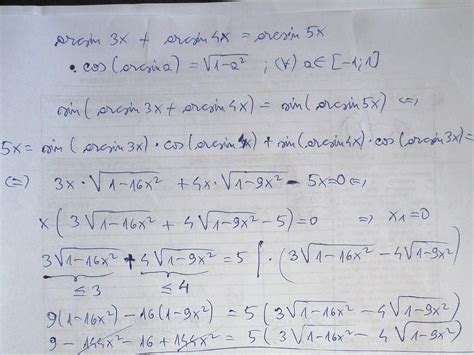 arcsin 3x + arcsin 4x = arcsin 5x
• cos(arcsin a) = √1-a² ; (∀) a∈[-1;1]
sin(arcsin 3x + arcsin 4x) = sin(arcsin 5x) ⇔
5x = sin(arcsin 3x)·cos(arcsin 4x) + sin(arcsin 4x)·cos(arcsin 3x) =
⇔ 3x·√1-16x² + 4x·√1-9x² - 5x = 0 ⇔
x(3√1-16x² + 4√1-9x² - 5) = 0 ⇒ x₁ = 0
3√1-16x² + 4√1-9x² = 5 | ·(3√1-16x² - 4√1-9x²)
≤3 ≤4
9(1-16x²) - 16(1-9x²) = 5(3√1-16x² - 4√1-9x²)
9 - 144x² - 16 + 144x² = 5(3√1-16x² - 4√1-9x²)